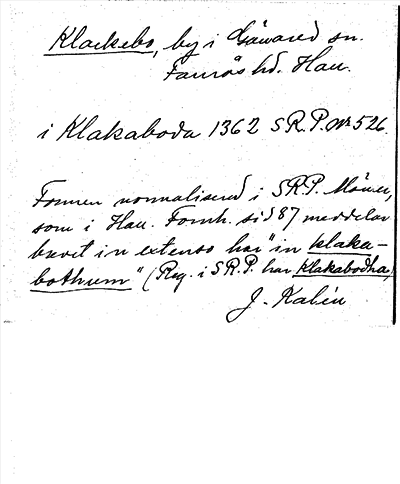 Klackebo, by i Gåvared sn.
Faurås hd. Hall.
i Klakaboda 1362 SRP. nr 526.
Formen normaliserad i SRP. Månne,
som i Hall. Fornh. sid 87 meddelar
brevet in extenso har "in klaka-
bothum" (Reg. i SRP. har Klakabodha)
J. Kalén